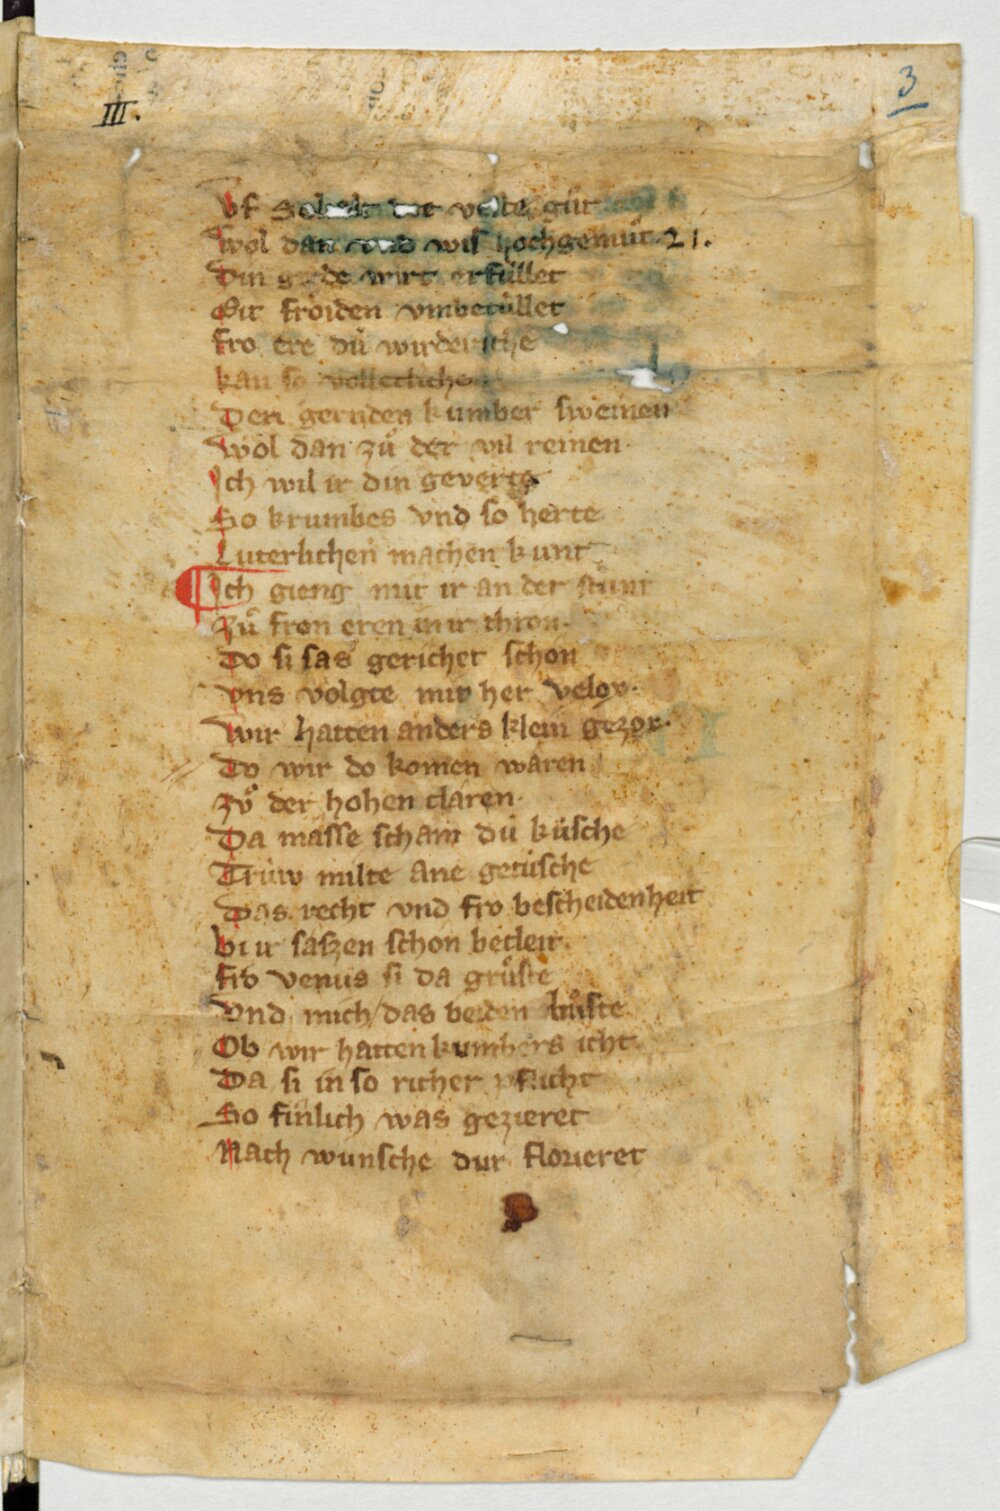 III.
3
Vf veste gůt
Wol dan vnd wis hochgemůt 21.
Din girde wirt erfüllet
Mit fröiden vmbetüllet
Fro ere dü wirderiche
kan so volleclichen
Den gernden kumber sweinen
Wol dan zů der vil reinen.
Ich wil ir din geverte
So krumbes vnd so herte
Luterlichen machen kunt
Ich gieng mit ir an der stunt
Zů fron eren in ir thron.
Do si sas gerichet schon
Vns volgte mit her velox.
Wir hatten anders klein gezox.
Do wir do komen waren
Zů der hohen claren.
Da masse scham dü küsche
Trüw milte ane getüsche
Das recht vnd fro bescheidenheit
Bi ir saszen schon becleit.
Fro Venus si da grůste
Vnd mich / das beiden bůste
Ob wir hatten kumbers icht
Da si in so richer pflicht
So finlich was gezieret
Nach wunsche dur florieret